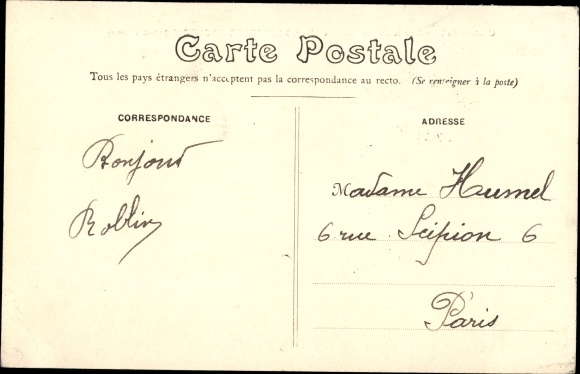 Carte Postale
Tous les pays étrangers n'acceptent pas la correspondance au recto. (Se renseigner à la poste)
CORRESPONDANCE
ADRESSE
Bonjour
Roblin
Madame Humel
6 rue Scipion 6
Paris